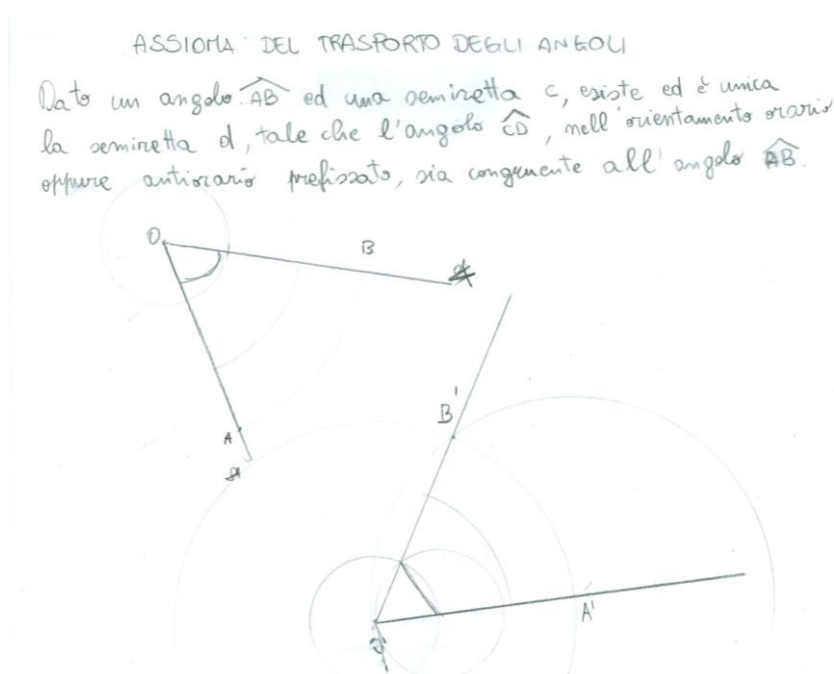 ASSIOMA DEL TRASPORTO DEGLI ANGOLI
Dato un angolo AB ed una semiretta c, esiste ed è unica
la semiretta d, tale che l'angolo CD, nell'orientamento orario
oppure antiorario prefissato, sia congruente all'angolo AB.
O
B
A
B'
A'
O'